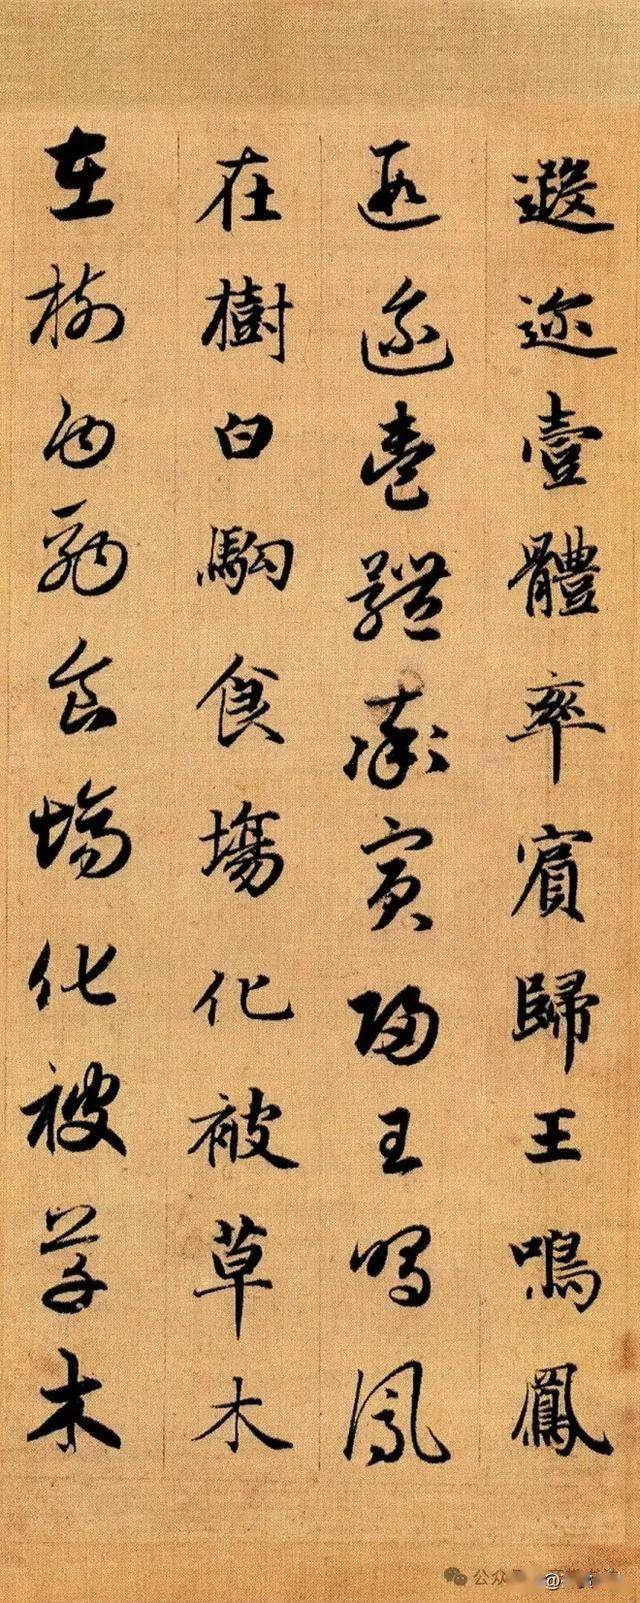 遐迩壹體率賓歸王鳴鳳
遐迩壹體率賓歸王鳴鳳
在樹白駒食場化被草木
在樹白駒食場化被草木
公众